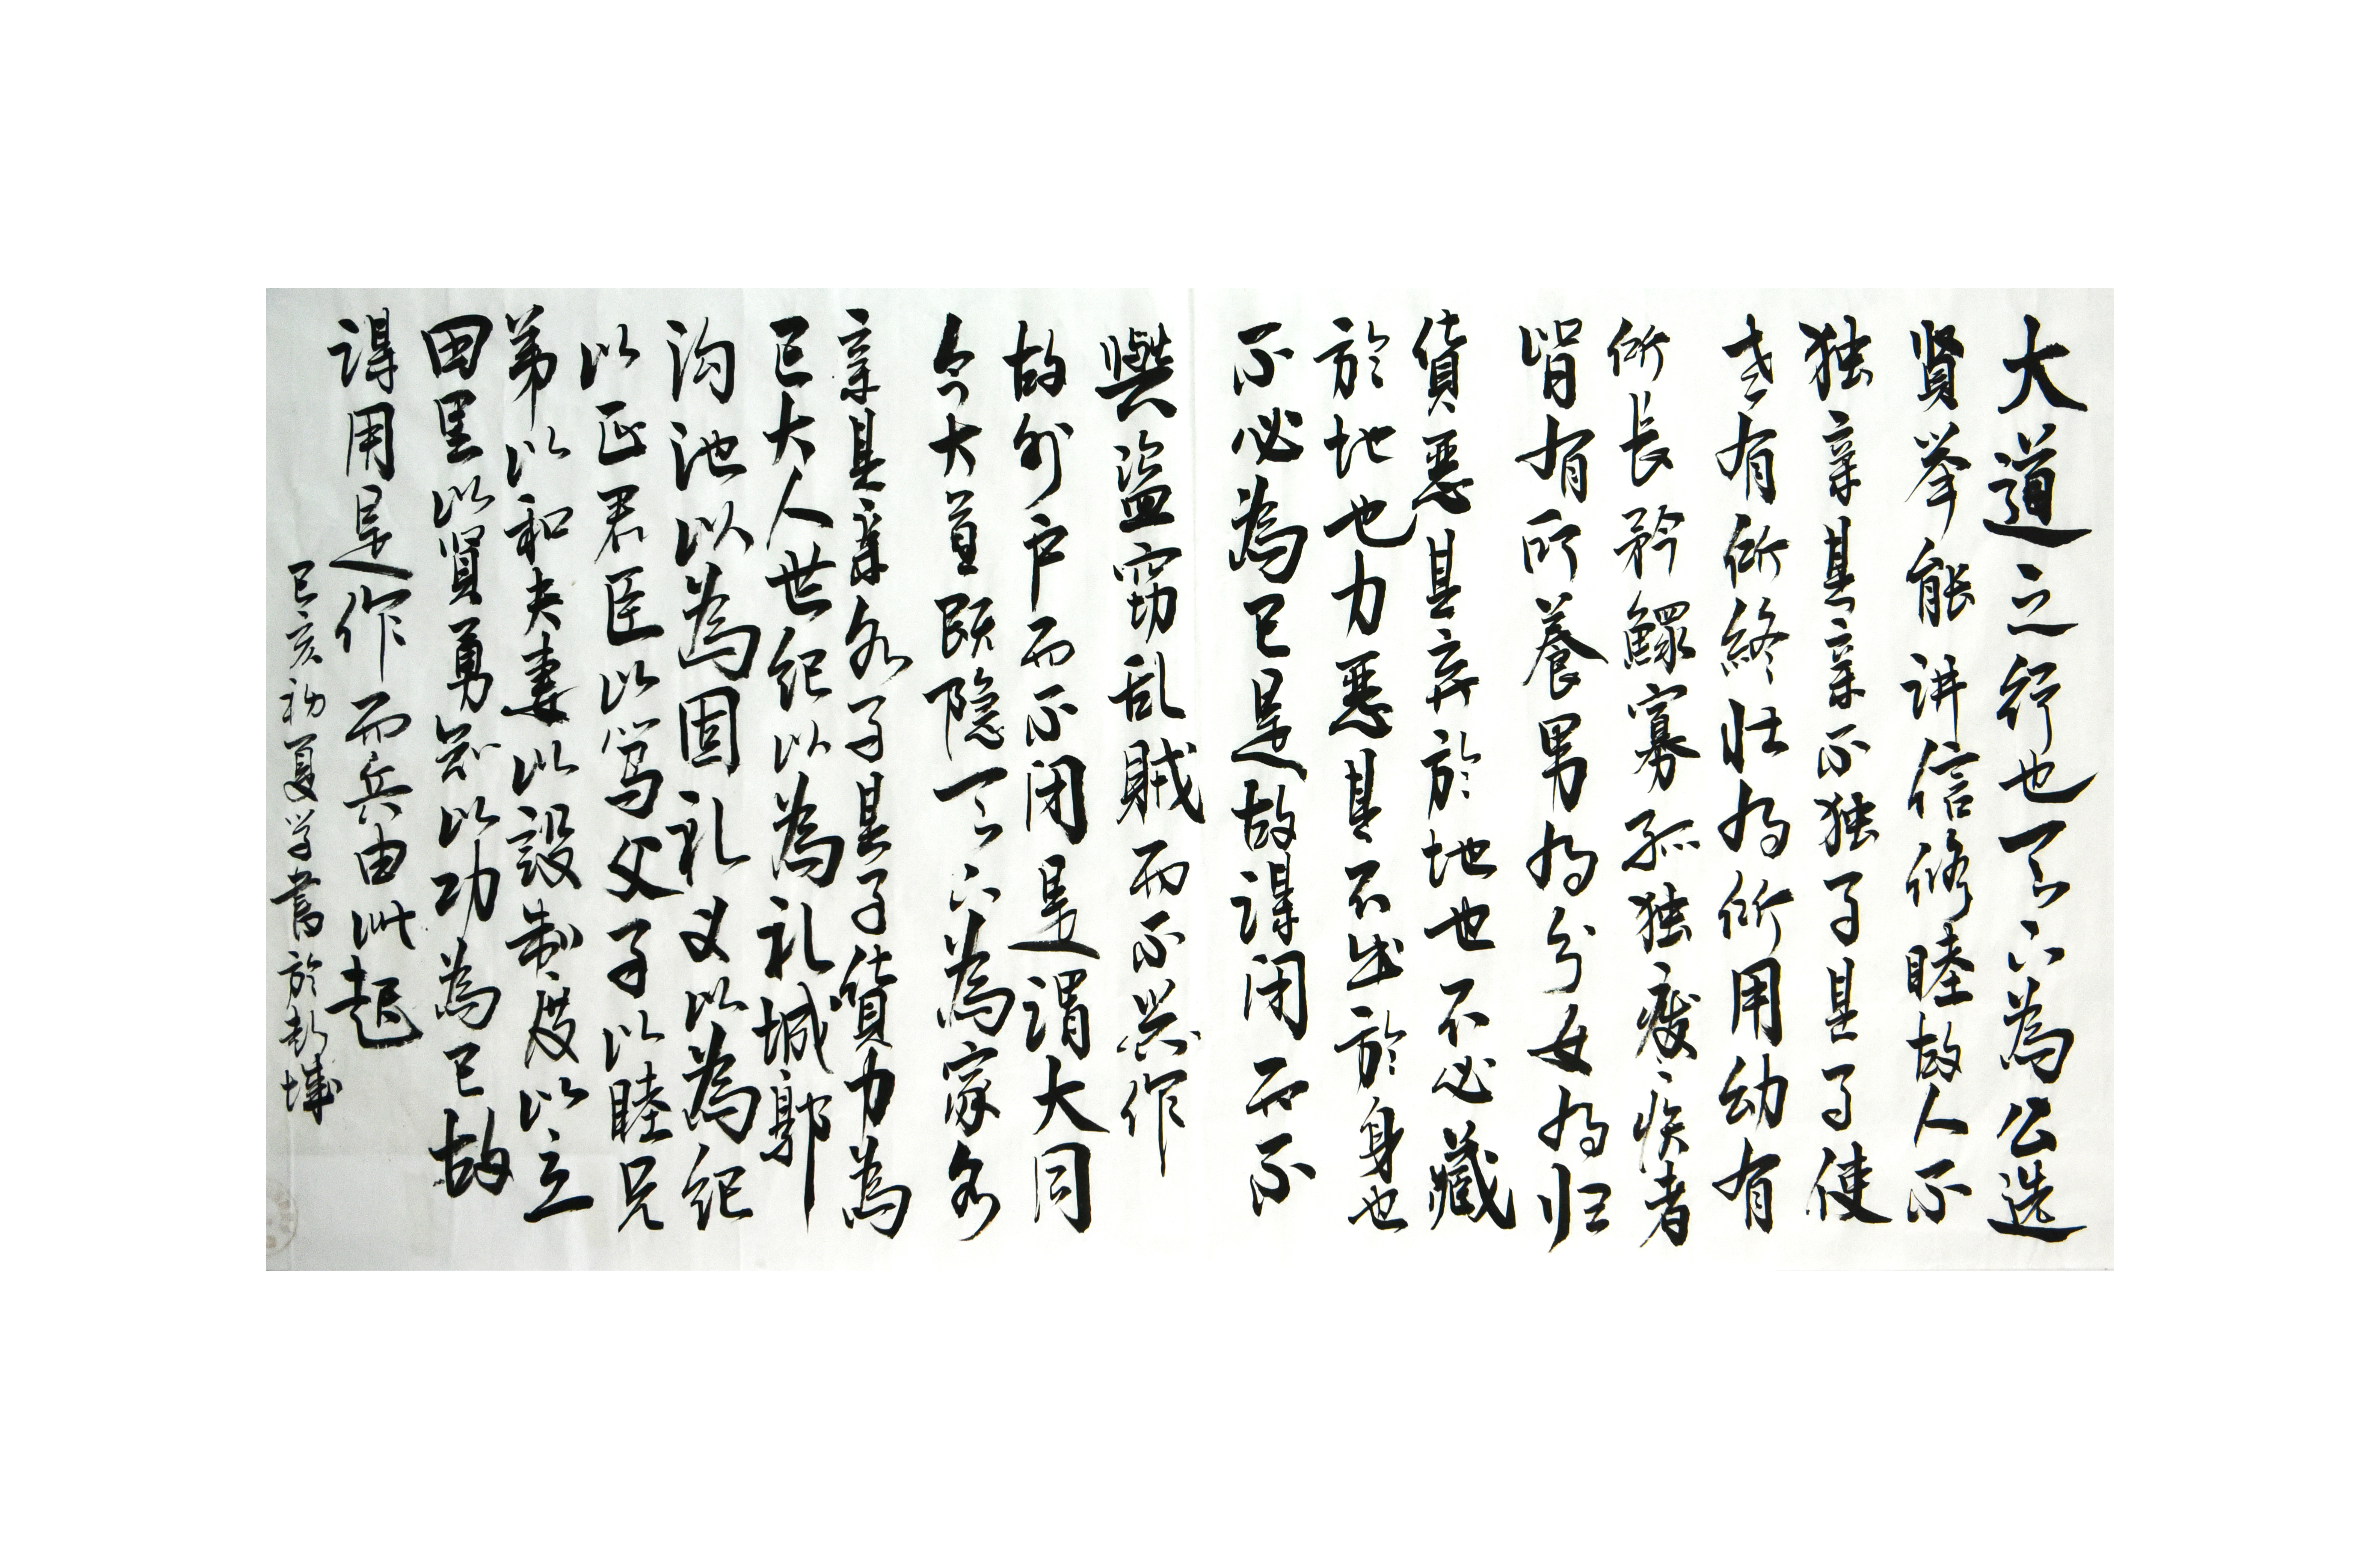 大道之行也天下為公选
贤举能讲信修睦故人不
独亲其亲不独子其子使
老有所终壮有所用幼有
所长矜鳏寡孤独废疾者
皆有所養男有分女有归
貨惡其弃於地也不必藏
於地也力惡其不出於身也
不必為己是故谋闭而不
興盗窃乱賊而不兴作
故外户而不闭是谓大同
今大道既隐天下為家各
亲其亲各子其子貨力為
己大人世纪以為礼城郭
沟池以為固礼义以為纪
以正君臣以笃父子以睦兄
弟以和夫妻以設制度以立
田里以賢勇知以功為己故
谋用是作而兵由此起
己亥初夏学書於彭城